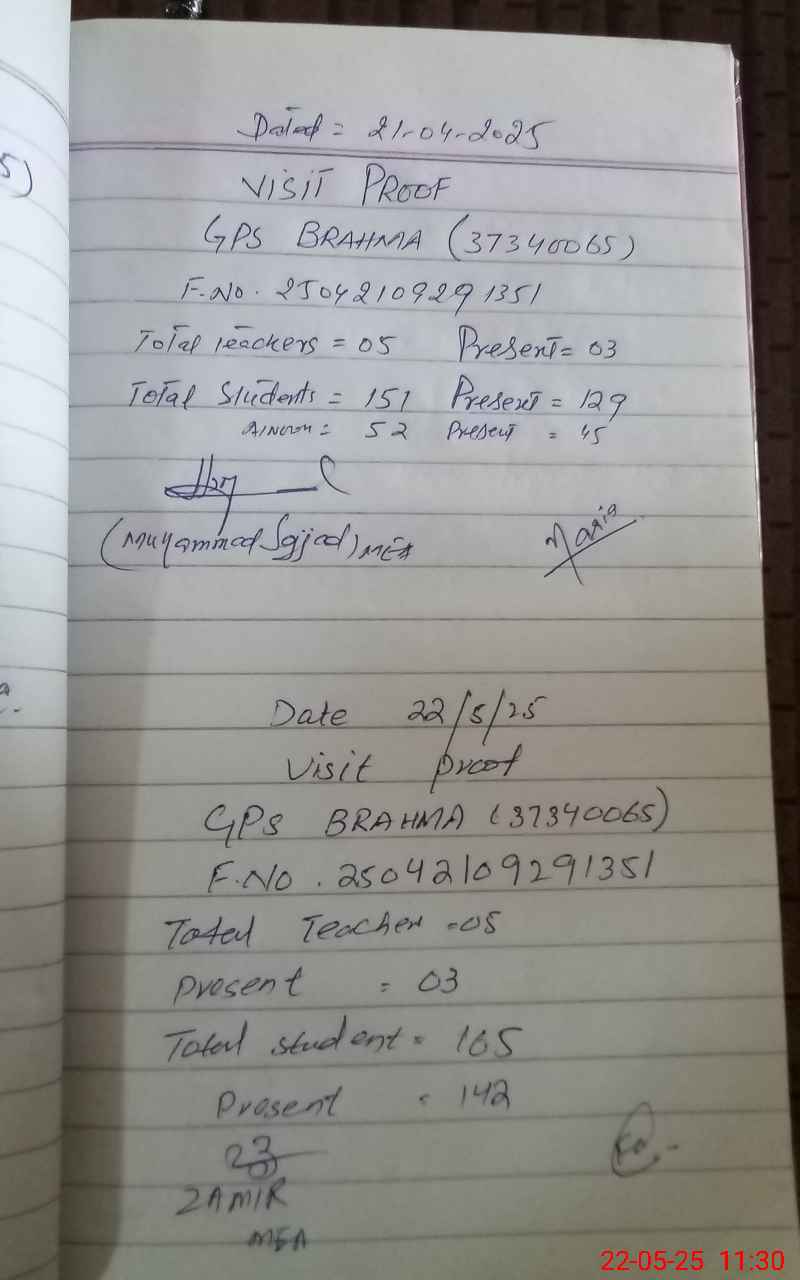 5)
Dated = 21-04-2025
VISIT PROOF
GPS BRAHMA (37340065)
F.No. 25042109291351
Total teachers = 05 Present = 03
Total Students = 151 Present = 129
52 Present = 45
(Muhammad Sajjad) MEA
Maria
Date 22/5/25
Visit proof
GPS BRAHMA (37340065)
F.No. 25042109291351
Total Teacher = 05
Present = 03
Total student = 165
Present = 142
ZAMIR
MEA
22-05-25 11:30